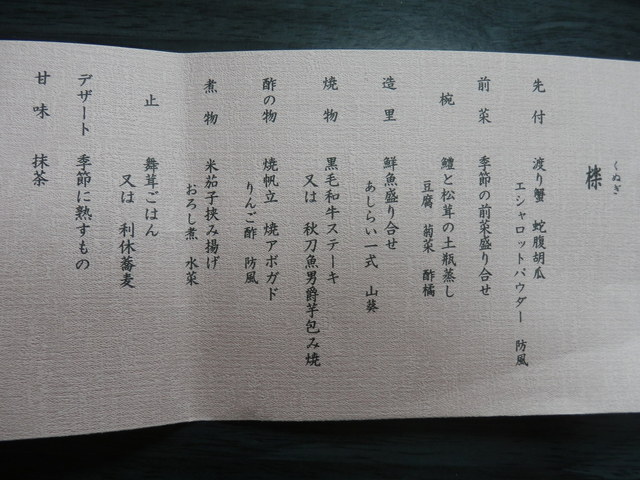 くぬぎ
櫟
先付 渡り蟹 蛇腹胡瓜
エシャロットパウダー 防風
前菜 季節の前菜盛り合せ
椀 鱧と松茸の土瓶蒸し
豆腐 菊菜 酢橘
造里 鮮魚盛り合せ
あしらい一式 山葵
焼物 黒毛和牛ステーキ
又は 秋刀魚男爵芋包み焼
酢の物 焼帆立 焼アボガド
りんご酢 防風
煮物 米茄子挟み揚げ
おろし煮 水菜
止 舞茸ごはん
又は 利休蕎麦
デザート 季節に熟すもの
甘味 抹茶